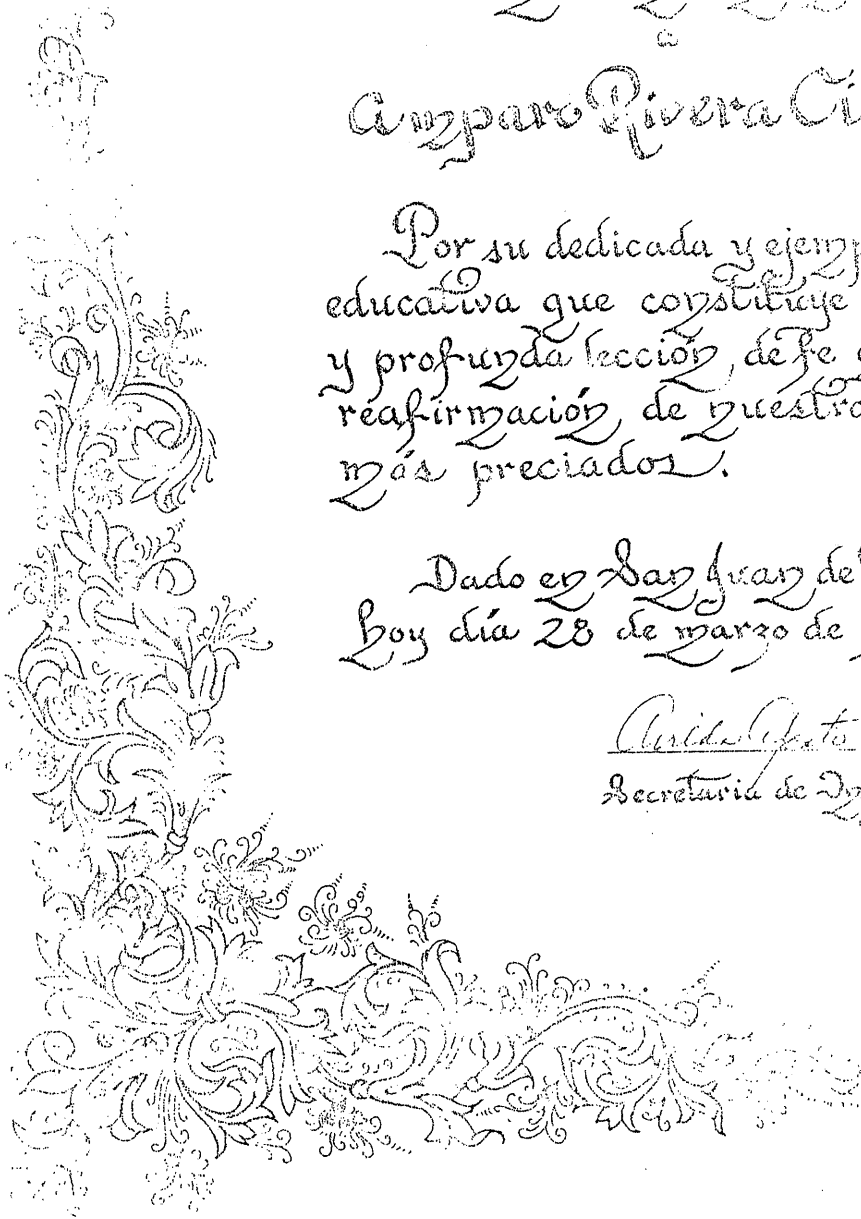 a
Amparo Rivera Ci
Por su dedicada y ejemp
educativa que constituye
y profunda lección de fe
reafirmación de nuestro
más preciados.
Dado en San Juan de
hoy día 28 de marzo de
Secretaria de